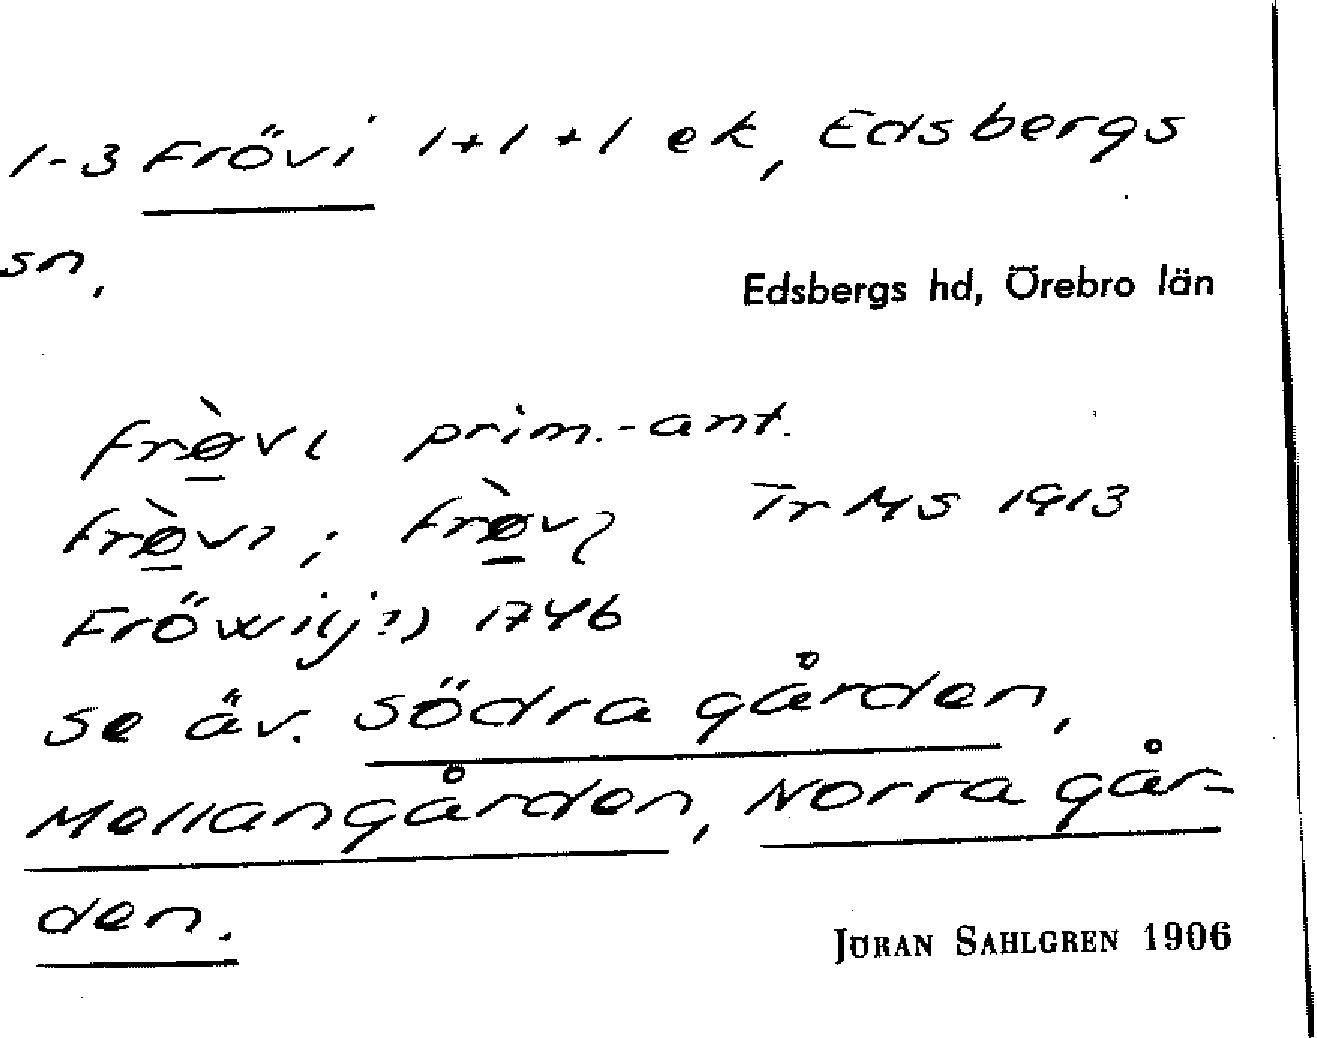 1-3 Frövi 1+1+1 ek, Edsbergs
sn,
Edsbergs hd, Örebro län
frø̠̀vı prim.-ant.
frø̠̀vı ; frø̠̀vı TrMS 1913
Fröwilj?) 1746
se äv. södra gården,
Mellangården, Norra går-
den.
JÖRAN SAHLGREN 1906